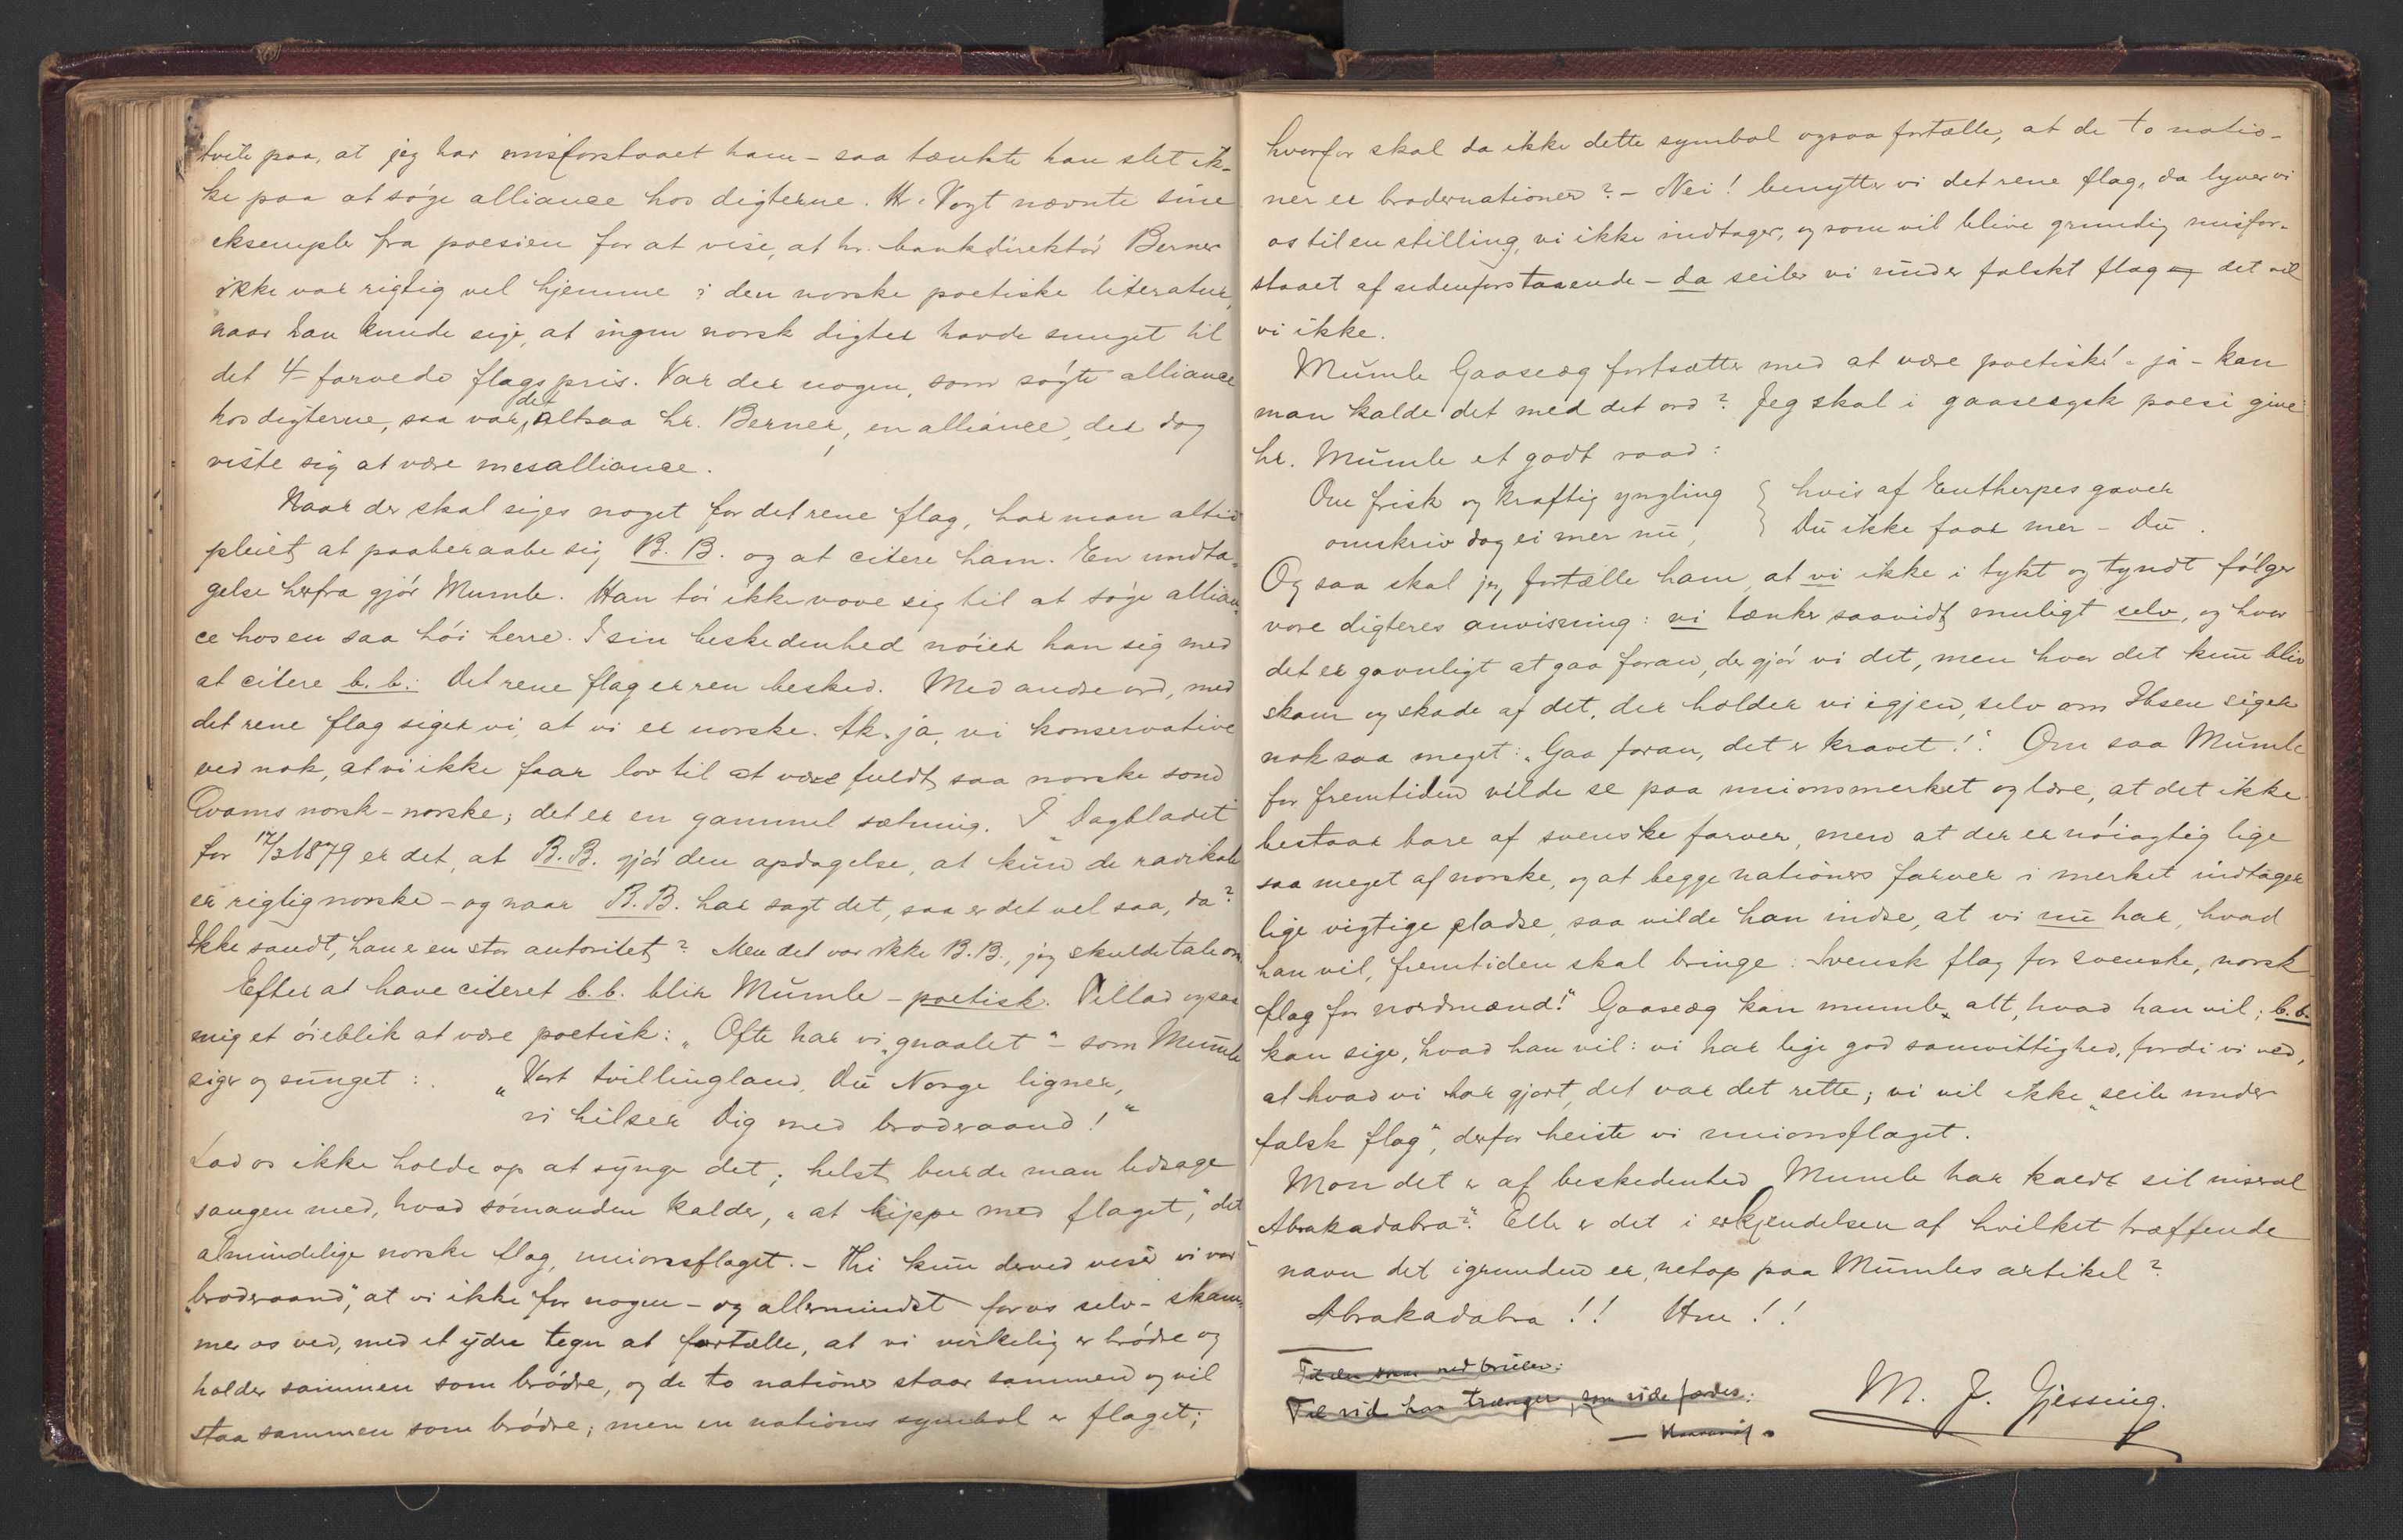 tvile paa, at jeg har misforstaaet ham – saa tænkte han slet ik-
ke paa at søge alliance hos digterne. Hr. Vogt nævnte sine
eksempler fra poesien for at vise, at hr. bankdirektør Berner
ikke var rigtig vel hjemme i den norske poetiske literatur,
naar han kunde sige, at ingen norsk digter havde sunget til
det 4-farvede flags pris. Var der nogen, som søgte alliance
hos digterne, saa var det altsaa hr. Berner, en alliance, der dog
viste sig at være mesalliance.
Naar der skal siges noget for det rene flag, har man altid
pleiet at paaberaabe sig B. B. og at citere ham. En undta-
gelse herfra gjør Mumle. Han tør ikke vove sig til at søge allian-
ce hos en saa høi herre. I sin beskedenhed nøier han sig med
at citere b. b.: Det rene flag er ren besked. Med andre ord, med
det rene flag siger vi, at vi er norske. Ak ja, vi konservative
ved nok, at vi ikke faar lov til at være fuldt saa norske som
Qvams norsk-norske; det er en gammel sætning. I "Dagbladet"
for 17/3 1879 er det, at B. B. gjør den opdagelse, at kun de radikale
er rigtig norske – og naar B. B. har sagt det, saa er det vel saa, da?
Ikke sandt, han er en stor autoritet? Men det var ikke B. B., jeg skulde tale om.
Efter at have citeret b. b. blir Mumle – poetisk. Tillad ogsaa
mig et øieblik at være poetisk: "Ofte har vi "graalet" – som Mumle
siger og sunget: "Vort tvillingland, Du Norge ligner,
vi hilser Dig med broderaand!"
Lad os ikke holde op at synge det; helst burde man ledsage
sangen med, hvad sømanden kalder, "at kippe med flaget," det
almindelige norske flag, unionsflaget. – Thi kun derved viser vi vor
"broderaand," at vi ikke for nogen – og allermindst for os selv – skam-
mer os ved, med et ydre tegn at fortælle, at vi virkelig er brødre og
holder sammen som brødre, og de to nationer staar sammen og vil
staa sammen som brødre; men en nations symbol er flaget;
hvorfor skal da ikke dette symbol ogsaa fortælle, at de to natio-
ner er brodernationer? – Nei! benytter vi det rene flag, da lyver vi
os til en stilling, vi ikke indtager, og som vil blive grundig misfor-
staaet af udenforstaaende – da seiler vi under falskt flag og det vil
vi ikke.
Mumle Gaaseæg fortsætter med at være poetisk! – ja – kan
man kalde det med det ord? Jeg skal i gaaseægsk poesi give
hr. Mumle et godt raad:
Om frisk og kraftig yngling } hvis af Eutherpes gaver
omskriv dog ei mer nu, } Du ikke faar mer – Du.
Og saa skal jeg fortælle ham, at vi ikke i tykt og tyndt følger
vore digteres anvisning: vi tænker saavidt muligt selv, og hvor
det er gavnligt at gaa foran, der gjør vi det, men hvor det kun blir
skam og skade af det, der holder vi igjen, selv om Ibsen siger
nok saa meget: "Gaa foran, det er kravet!" Om saa Mumle
for fremtiden vilde se paa unionsmerket og lære, at det ikke
bestaar bare af svenske farver, men at der er nøiagtig lige
saa meget af norske, og at begge nationers farver i merket indtager
lige vigtige pladse, saa vilde han indse, at vi nu har, hvad
han vil, fremtiden skal bringe: Svensk flag for svenske, norsk
flag for nordmænd!" Gaaseæg kan mumle alt, hvad han vil; b. b.
kan sige, hvad han vil: vi har lige god samvittighed, fordi vi ved,
at hvad vi har gjort, det var det rette; vi vil ikke "seile under
falsk flag", derfor heiste vi unionsflaget.
Mon det er af beskedenhed Mumle har kaldt sit miserel
"Abrakadabra"? Eller er det i erkjendelsen af hvilket træffende
navn det igrunden er, netop paa Mumles artikel?
Abrakadabra!! Hm!!
M. J. Gjessing.